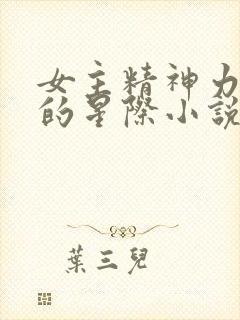 女主精神力
的星際小說
葉三兒